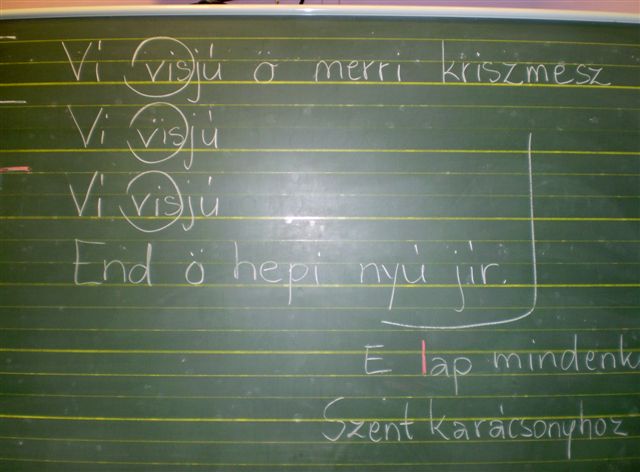 Ví visjú ö merri kriszmesz
Ví visjú
Ví visjú
End ö hepi nyú jír.
E lap mindenk
Szent karácsonyhoz